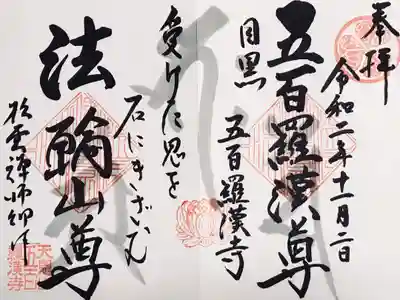 奉拝
令和二年十一月二日
五百羅漢尊
目黒
五百羅漢寺
受けた恩を
石にきざむ
法輪山尊
松雲禅師御作
天恩山五百羅漢寺